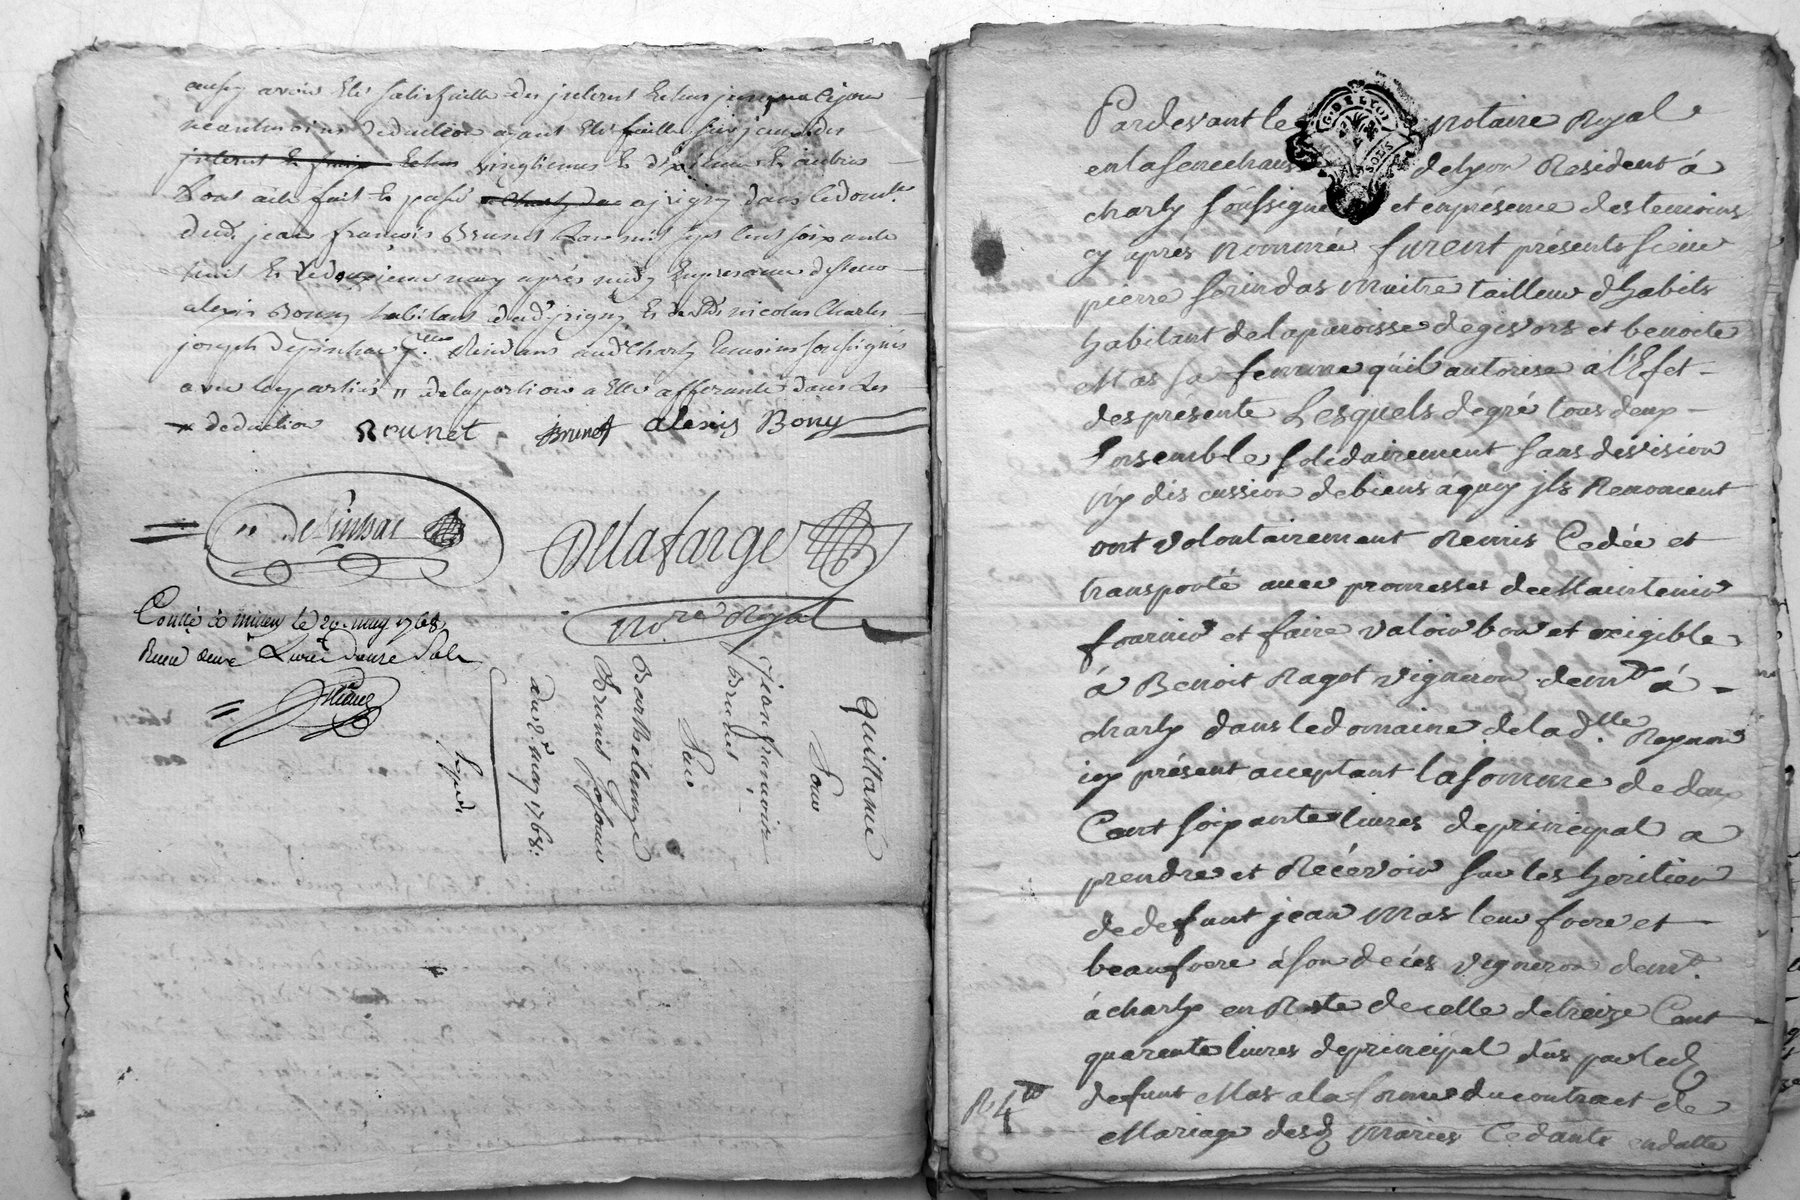 aussy avoir été satisfaitte des jnterest Echus jusqua cejour
neantmoins deduction ayant été faitte sur jceux des
jnterest Echus vingtiemes Et dixieme Et autres
dont acte fait Et passé ajrigny dans le domlle
dud. jean françois Brunet Lan mil sept cent soixante
huit Et le deuxieme may après midy En presance de sieur
alexis Bonny habitant dud jrigny Et de nicolas Charles
joseph Residans aud Charly temoins soussignés
avec les parties // de la portion a Elle afferante dans les
deduction Brunet Brunet alexis Bony
Delafarge
nore Royal
Conlle à millery le 20 may 1768
Quittance
Pour
jean francois
Brunet
Par
Barthelemye
Brunet
du 2e may 1768.
Pardevant le notaire Royal
en la senechaussée de Lyon Resident á
charly soussigné et en présence des temoins
cy après nommés furent présents sieur
pierre serindas maitre tailleur d'habits
habitant de la paroisse de givors et benoite
Mas sa femme qu'il autorise a l'Efet
des présente Lesquels de gré tous deux
Ensemble solidairement sans division
ny discussion de biens a quoy jls Renoncent
ont volontairement Remis Cedée et
transporté avec promesses de Maintenir
fournir et faire valoir bon et exigible
á Benoit Ragot vigneron demt á
charly dans le domaine de la dlle Reynon
icy présent acceptant la somme de deux
Cent soixante livres de principal a
prendre et Récévoir sur les heritiers
de defunt jean Mas leur frere et
beaufrere á son décès vigneron demt
á charly en Reste de celle de treize Cent
quarente livres de principal dus par led
defunt Mas a la forme du contract de
Mariage desd Mariés Cedants en datte
G. DE LYON
SOLS